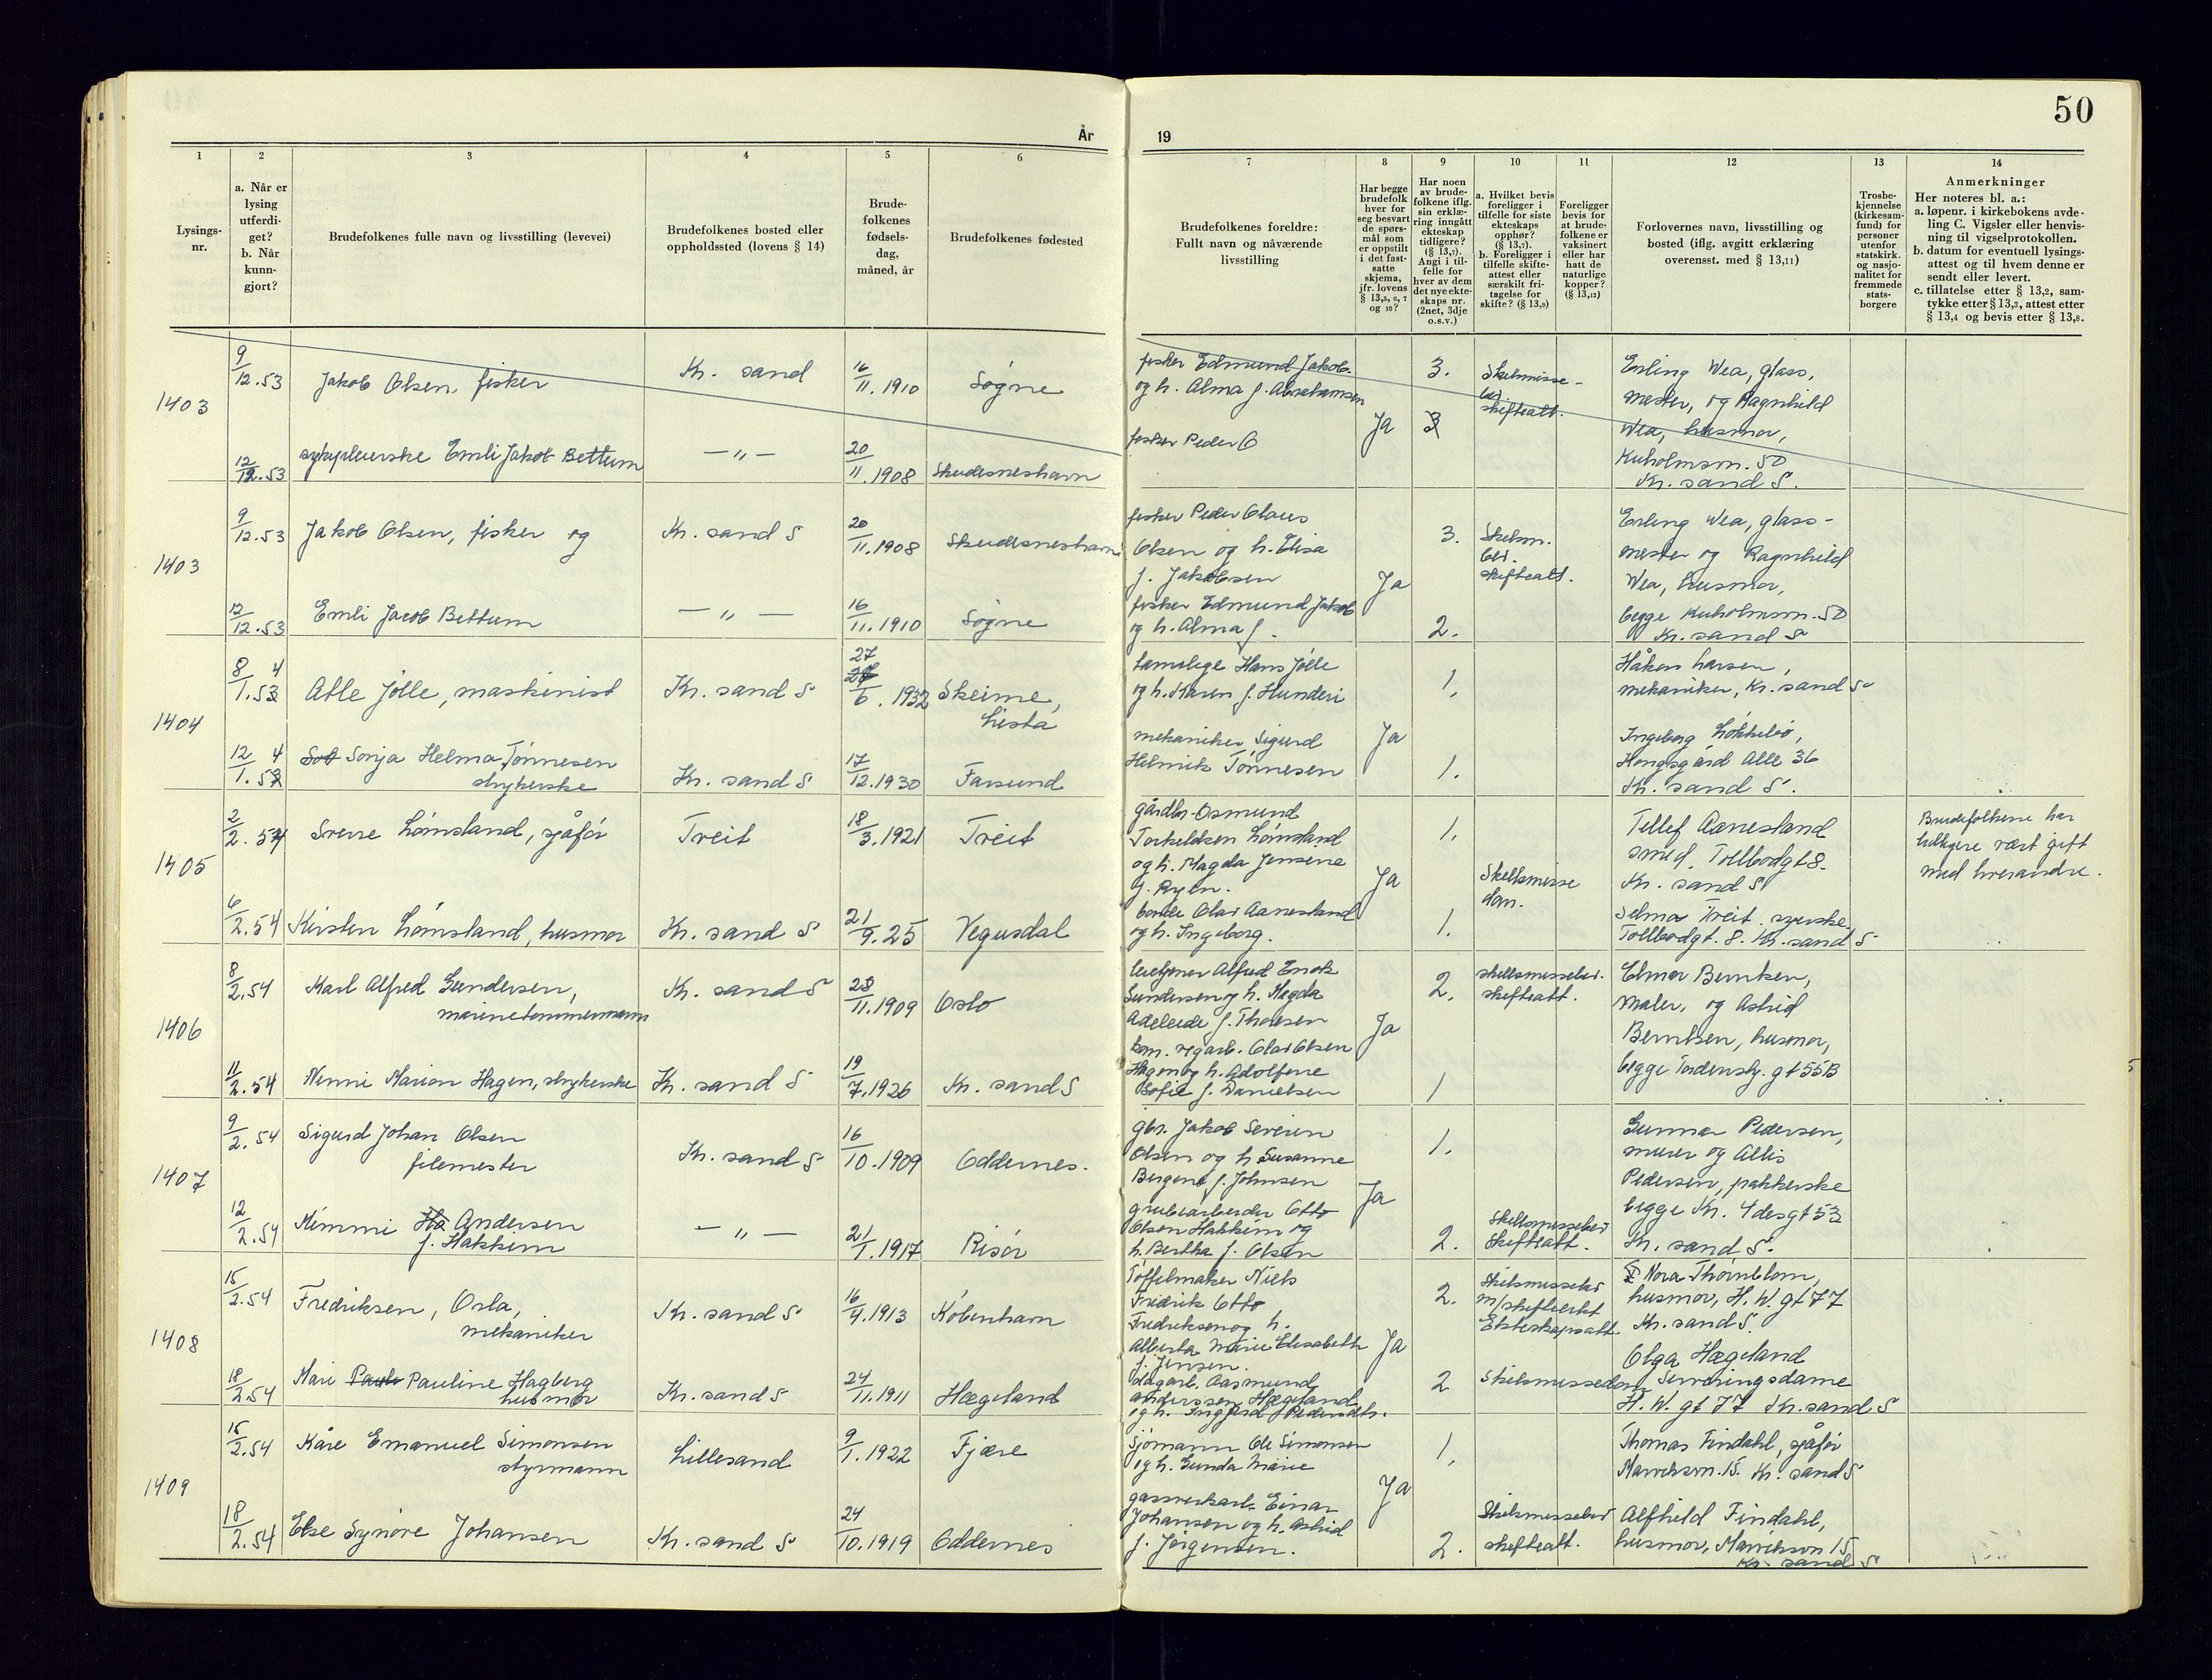 50
År 19
1
2
3
4
5
6
7
8
9
10
11
12
13
14
Lysings-
nr.
a. Når er
lysing
utferdi-
get?
b. Når
kunn-
gjort?
Brudefolkenes fulle navn og livsstilling (levevei)
Brudefolkenes bosted eller
oppholdssted (lovens § 14)
Brude-
folkenes
fødsels-
dag,
måned, år
Brudefolkenes fødested
Brudefolkenes foreldre:
Fullt navn og nåværende
livsstilling
Har begge
brudefolk
hver for
seg besvart
de spørs-
mål som
er oppstilt
i det fast-
satte
skjema,
jfr. lovens
§ 13,5, 6, 7
og 10?
Har noen
av brude-
folkene iflg.
sin erklæ-
ring inngått
ekteskap
tidligere?
(§ 13,7).
Angi i til-
felle for
hver av dem
det nye ekte-
skaps nr.
(2net, 3dje
o.s.v.)
a. Hvilket bevis
foreligger i
tilfelle for siste
ekteskaps
opphør?
(§ 13,7).
b. Foreligger i
tilfelle skifte-
attest eller
særskilt fri-
tagelse for
skifte? (§ 13,9)
Foreligger
bevis for
at brude-
folkene er
vaksinert
eller har
hatt de
naturlige
kopper?
(§ 13,12)
Forlovernes navn, livsstilling og
bosted (iflg. avgitt erklæring
overensst. med § 13,11)
Trosbe-
kjennelse
(kirkesam-
fund) for
personer
utenfor
statskirk.
og nasjo-
nalitet for
fremmede
stats-
borgere
Anmerkninger
Her noteres bl. a.:
a. løpenr. i kirkebokens avde-
ling C. Vigsler eller henvis-
ning til vigselprotokollen.
b. datum for eventuell lysings-
attest og til hvem denne er
sendt eller levert.
c. tillatelse etter § 13,2, sam-
tykke etter § 13,3, attest etter
§ 13,4 og bevis etter § 13,8.
1403
9/12.53
Jakob Olsen, fisker
Kr. sand
16/11.1910
Søgne
fisker Edmund Jakob.
og h. Alma f. Abrahamsen
3.
Skilmisse-
bev.
skifteatt.
Erling Wea, glass,
mester, og Ragnhild
Wea, husmor,
Kuholmsvn. 50
Kr. sand S.
12/12.53
sykepleierske Emli Jakob Bettum
— „ —
20/11.1908
Skudesneshavn
fisker Peder O
Ja
1403
9/12.53
Jakob Olsen, fisker og
Kr. sand S
20/11.1908
Skudesneshavn
fisker Peder Olaus
Olsen og h. Elisa
f. Jakobsen
Ja
3.
Skilsm.
bev.
skifteatt.
Erling Wea, glass-
mester og Ragnhild
Wea, husmor,
begge Kuholmsvn. 50
Kr. sand S
12/12.53
Emli Jacob Bettum
— „ —
16/11.1910
Søgne
fisker Edmund Jakob
og h. Alma f.
2.
1404
8/1.54
Atle Jølle, maskinist
Kr. sand S
27/6.1932
Skeime,
Lista
Hans Jølle
og h. Karen f. Hunderi
Ja
1.
Håkon Larsen,
mekaniker, Kr. sand S
12/1.54
Sot Sonja Helma Tønnesen
strykerske
Kr. sand S
17/12.1930
Farsund
mekaniker Sigurd
Helmik Tønnesen
1.
Ingeborg Løkkebø,
Kongsgård Alle 36
Kr. sand S.
1405
2/2.54
Sverre Lømsland, sjåfør
Treit
18/3.1921
Treit
gårdbr. Osmund
Torkildsen Lømsland
og h. Magda Jensene
f. Ryen.
Ja
1.
Skillsmisse
dom.
Tellef Aanesland
smed. Tollbodgt 8.
Kr. sand S
Brudefolkene har
tidligere vært gift
med hverandre.
6/2.54
Kirsten Lømsland, husmor
Kr. sand S
21/9.25
Vegusdal
bonde Olav Aanesland
og h. Ingeborg.
1.
Selma Treit. syerske,
Tollbodgt. 8. Kr. sand S
1406
8/2.54
Karl Alfred Gundersen,
marinetømmermann
Kr. sand S
23/11.1909
Oslo
Alfred Enok
Gundersen og h. Magda
Adeleide f. Thorsen
Ja
2.
skillsmissebev.
skifteatt.
Elmar Berntsen,
maler, og Astrid
Berntsen, husmor,
begge Tordenskj. gt 55B
11/2.54
Nenni Marion Hagen, strykerske
Kr. sand S
19/7.1926
Kr. sand S
kom. vegarb. Olav Olsen
Hagen og h. Adolfine
Sofie f. Danielsen
1
1407
9/2.54
Sigurd Johan Olsen
filemester
Kr. sand S
16/10.1909
Oddernes.
gbr. Jakob Severin
Olsen og h Susanne
Bergene f. Johnsen
Ja
1.
Gunnar Pedersen,
murer og Allis
Pedersen, pakkerske
begge Kr. 4desgt 53
Kr. sand S.
12/2.54
Mimmi Ha Andersen
f. Hakkim
— „ —
21/1.1917
Risør
grubearbeider Otto
Olsen Hakkim og
h. Bertha f. Olsen
2.
Skillsmissebev
Skifteatt.
1408
15/2.54
Fredriksen, Orla,
mekaniker
Kr. sand S
16/4.1913
København
Tøffelmaker Niels
Fridrik Otto
Fredriksen og h.
Alberta Marie Elisabeth
f. Jensen.
Ja
2.
Skilsmissebev
m/skifteerkl
Ekteskapsatt.
Nora Thörnblom,
husmor, H. W. gt 77
Kr. sand S.
18/2.54
Mari Paule Pauline Hagberg
husmor
Kr. sand S
24/11.1911
Hægeland
dagarb. Aasmund
Anderssen Hægeland
og h. Ingfrid Pedersdtr.
2
Skilsmissedom
Olga Hægeland
Serveringsdame
H. W. gt 77 Kr. sand S
1409
15/2.54
Kåre Emanuel Simonsen
styrmann
Lillesand
9/1.1922
Fjære
Sjømann Ole Simonsen
og h. Gunda Marie
Ja
1.
Thomas Findahl, sjåfør
Marviksvn. 15. Kr. sand S
18/2.54
Else Synøre Johansen
Kr. sand S
24/10.1919
Oddernes
gassverkarb. Einar
Johansen og h. Astrid
f. Jørgensen.
2.
Skilsmissebev
skifteatt.
Alfhild Findahl,
husmor, Marviksvn 15
Kr. sand S